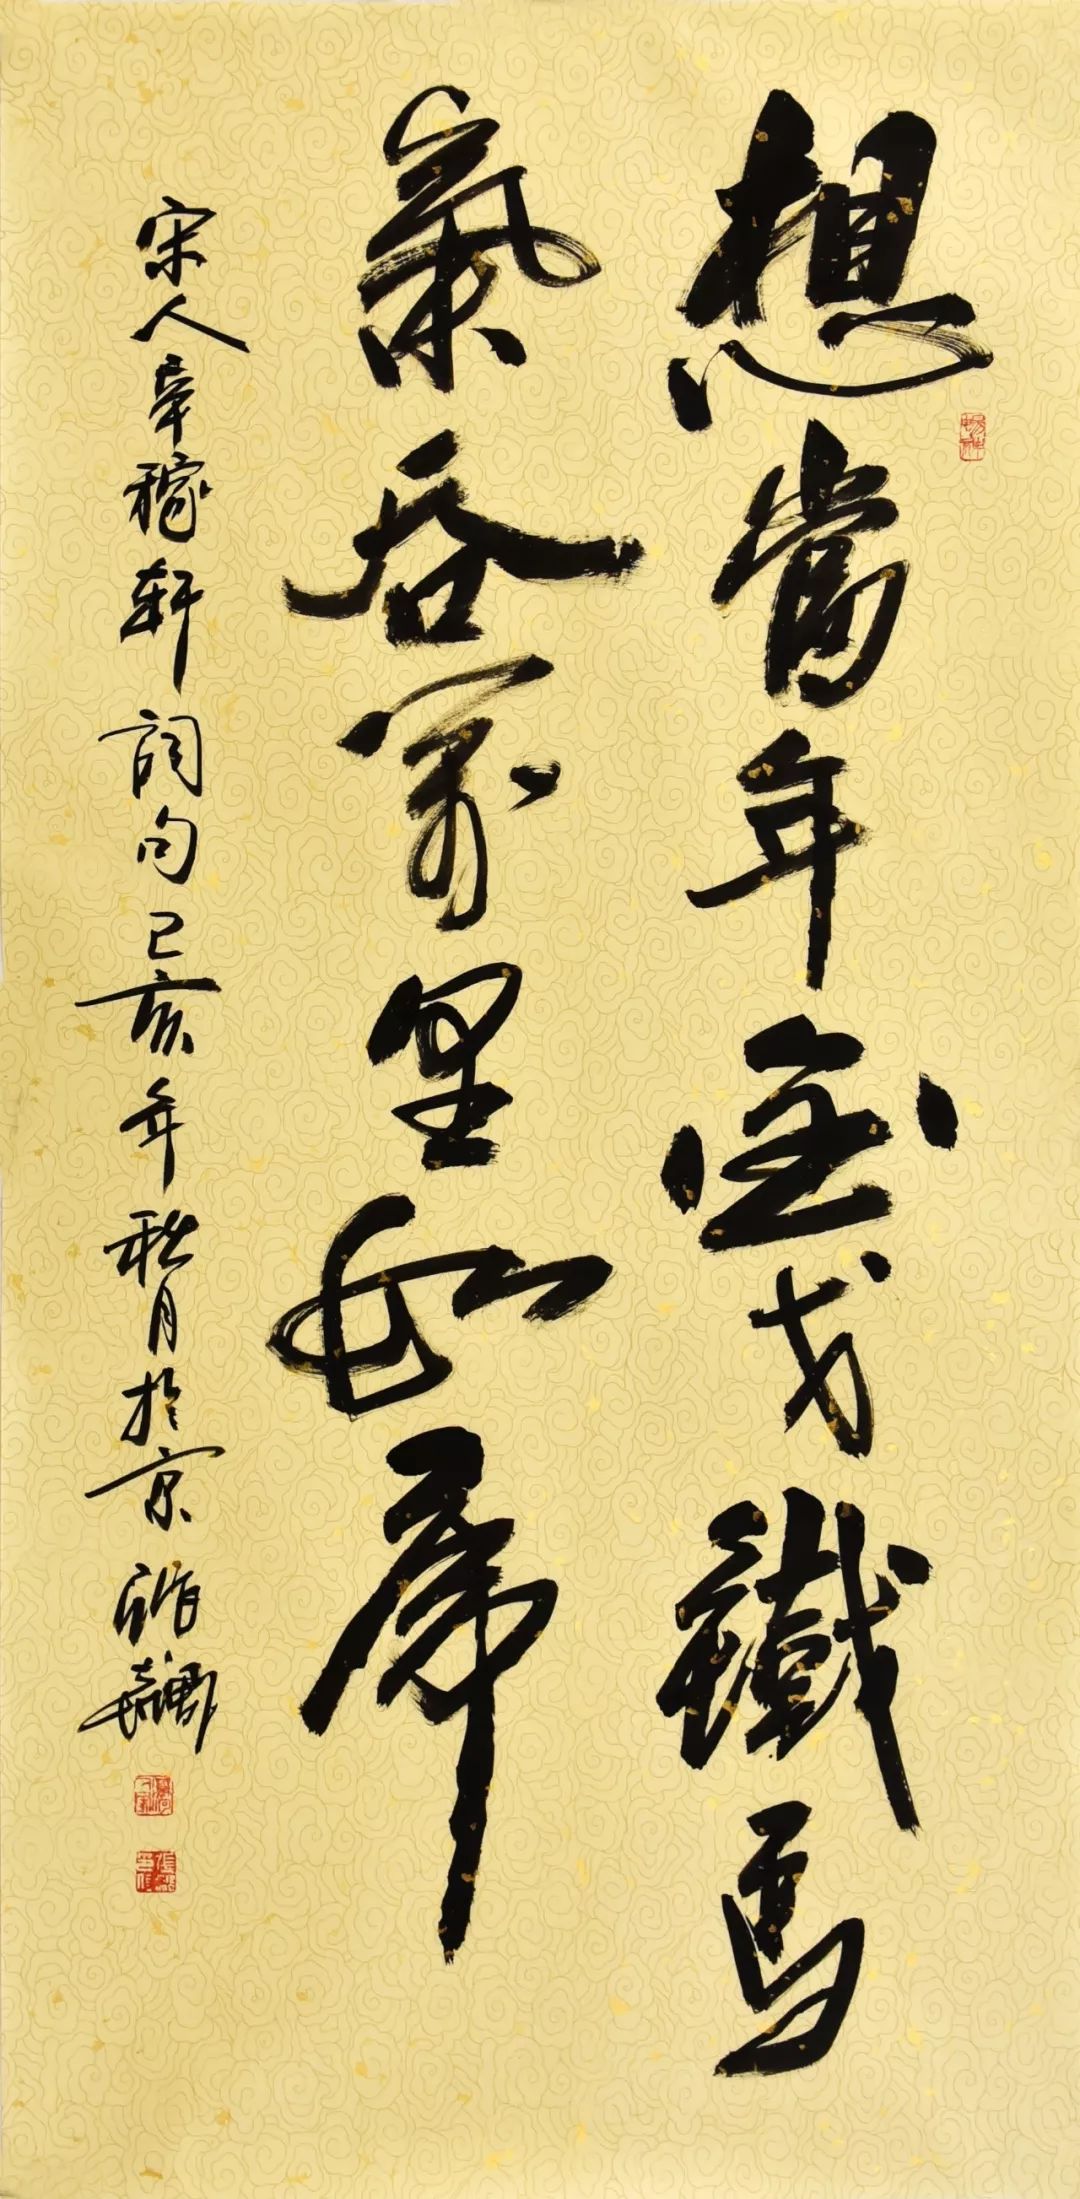 想當年金戈鐵馬
氣吞萬里如虎
宋人辛稼軒詞句己亥年秋月於京